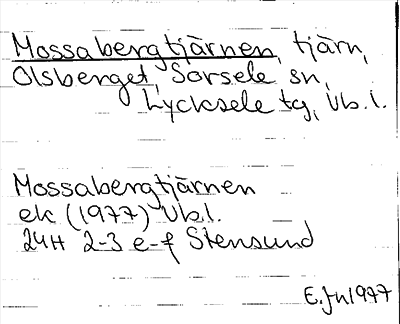 Mossabergtjärnen, tjärn,
Olsberget, Sorsele sn,
Lycksele tg, Vb.l.
Mossabergtjärnen
ek (1977) Vb.l.
24H 2-3 e-f Stensund
E.Jn 1977